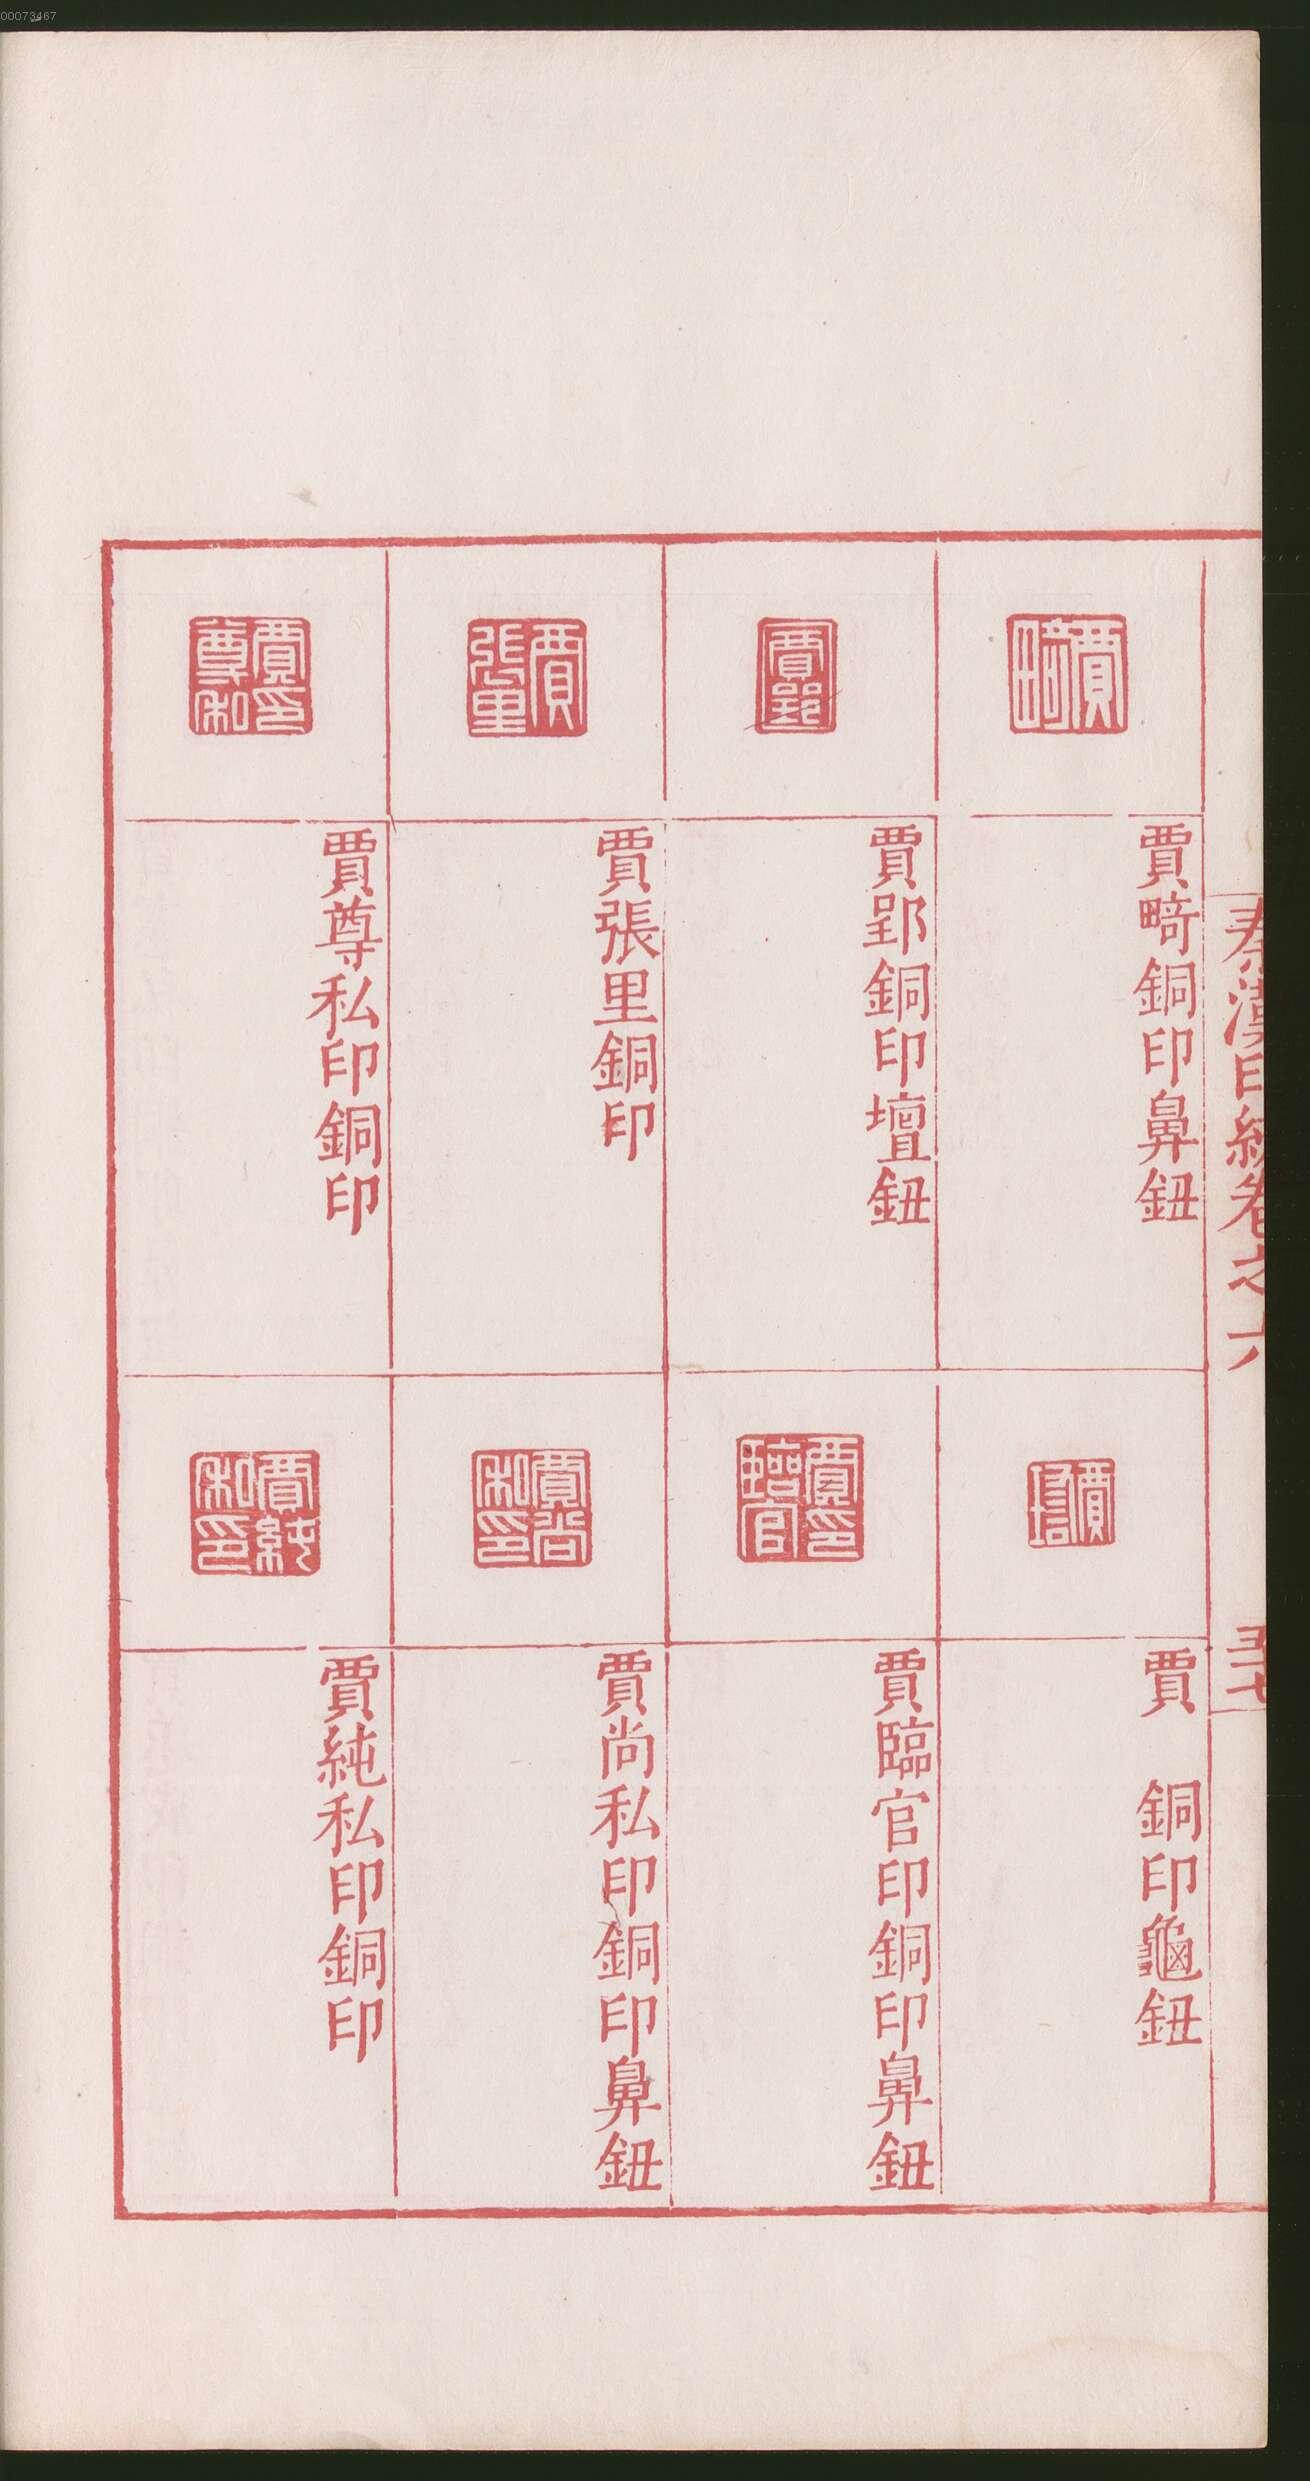 00073467
秦漢印統卷之六
五十七
賈畸
賈畸銅印鼻鈕
賈郢
賈郢銅印壇鈕
賈張里
賈張里銅印
賈尊私印
賈尊私印銅印
賈
賈　銅印龜鈕
賈臨官印
賈臨官印銅印鼻鈕
賈尚私印
賈尚私印銅印鼻鈕
賈純私印
賈純私印銅印